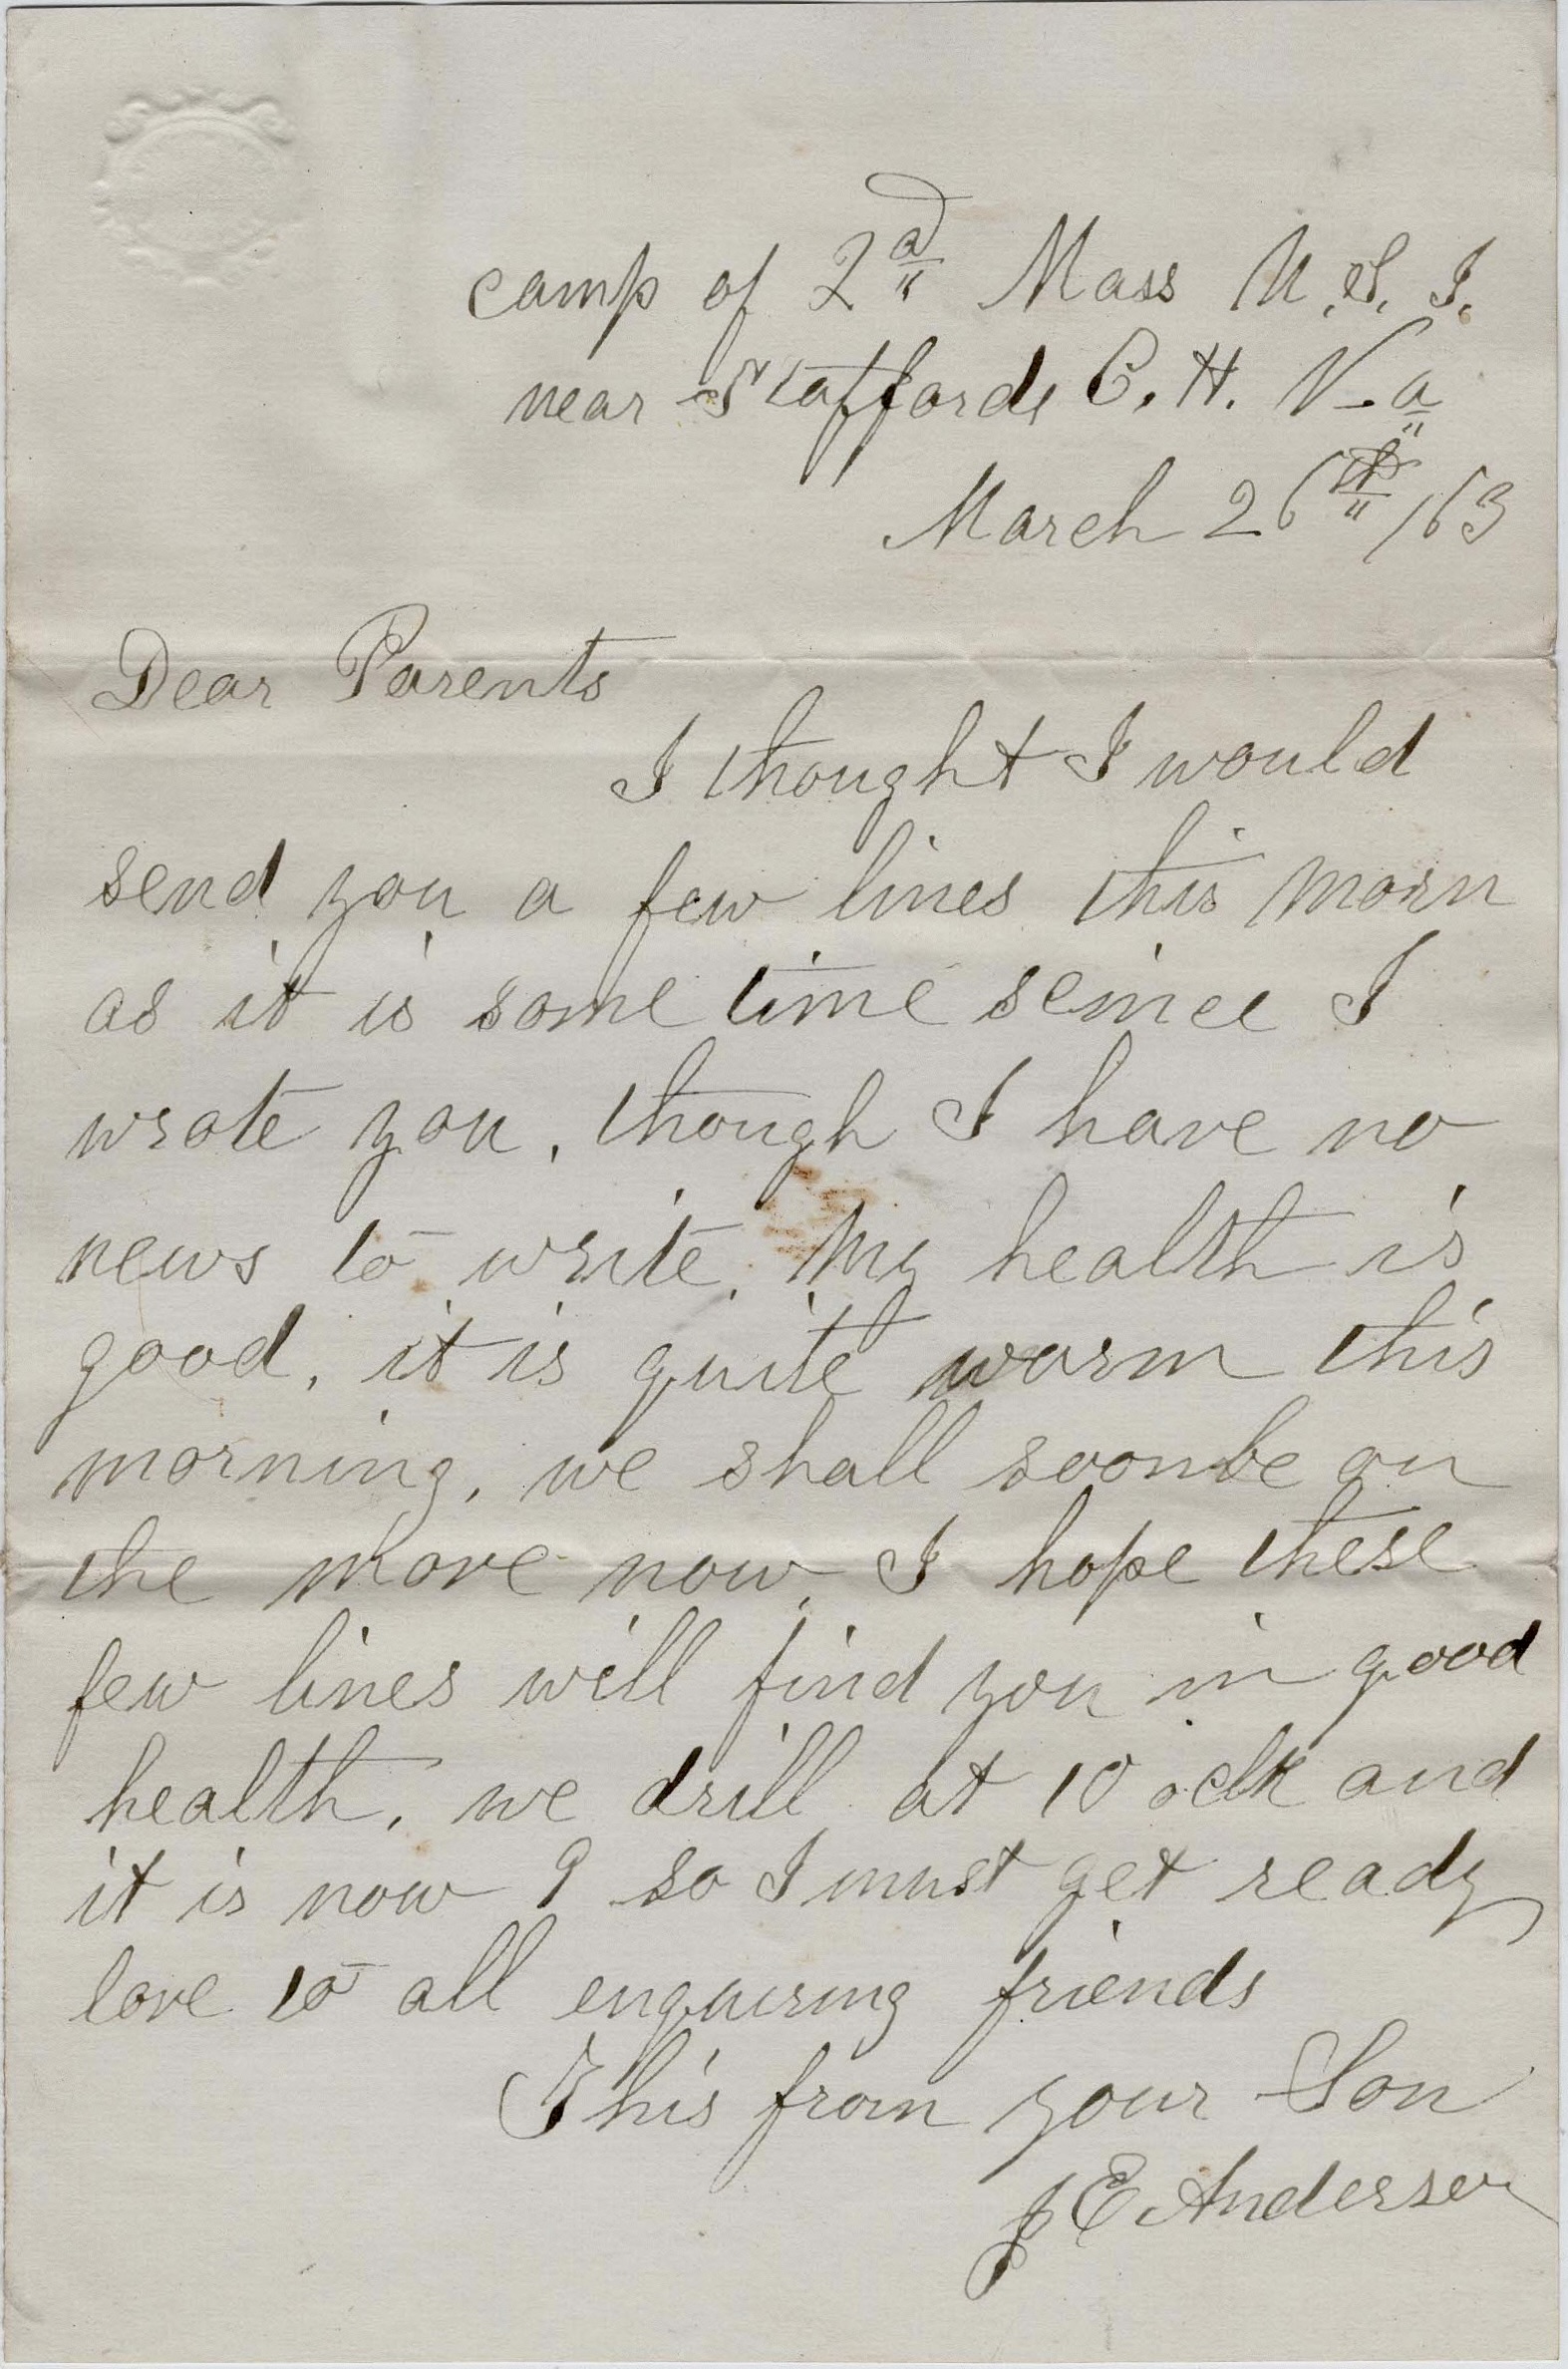 camp of 2d Mass U.S. I.
near Staffords C. H. V-a
March 26th /63
Dear Parents
I thought I would
send you a few lines this morn
as it is some time seince I
wrote you, though I have no
news to write, My health is
good, it is quite warm this
morning, we shall soon be on
the move now, I hope these
few lines will find you in good
health, we drill at 10 oclk and
it is now 9 so I must get ready
love to all enquiring friends
This from your Son
J E Anderson